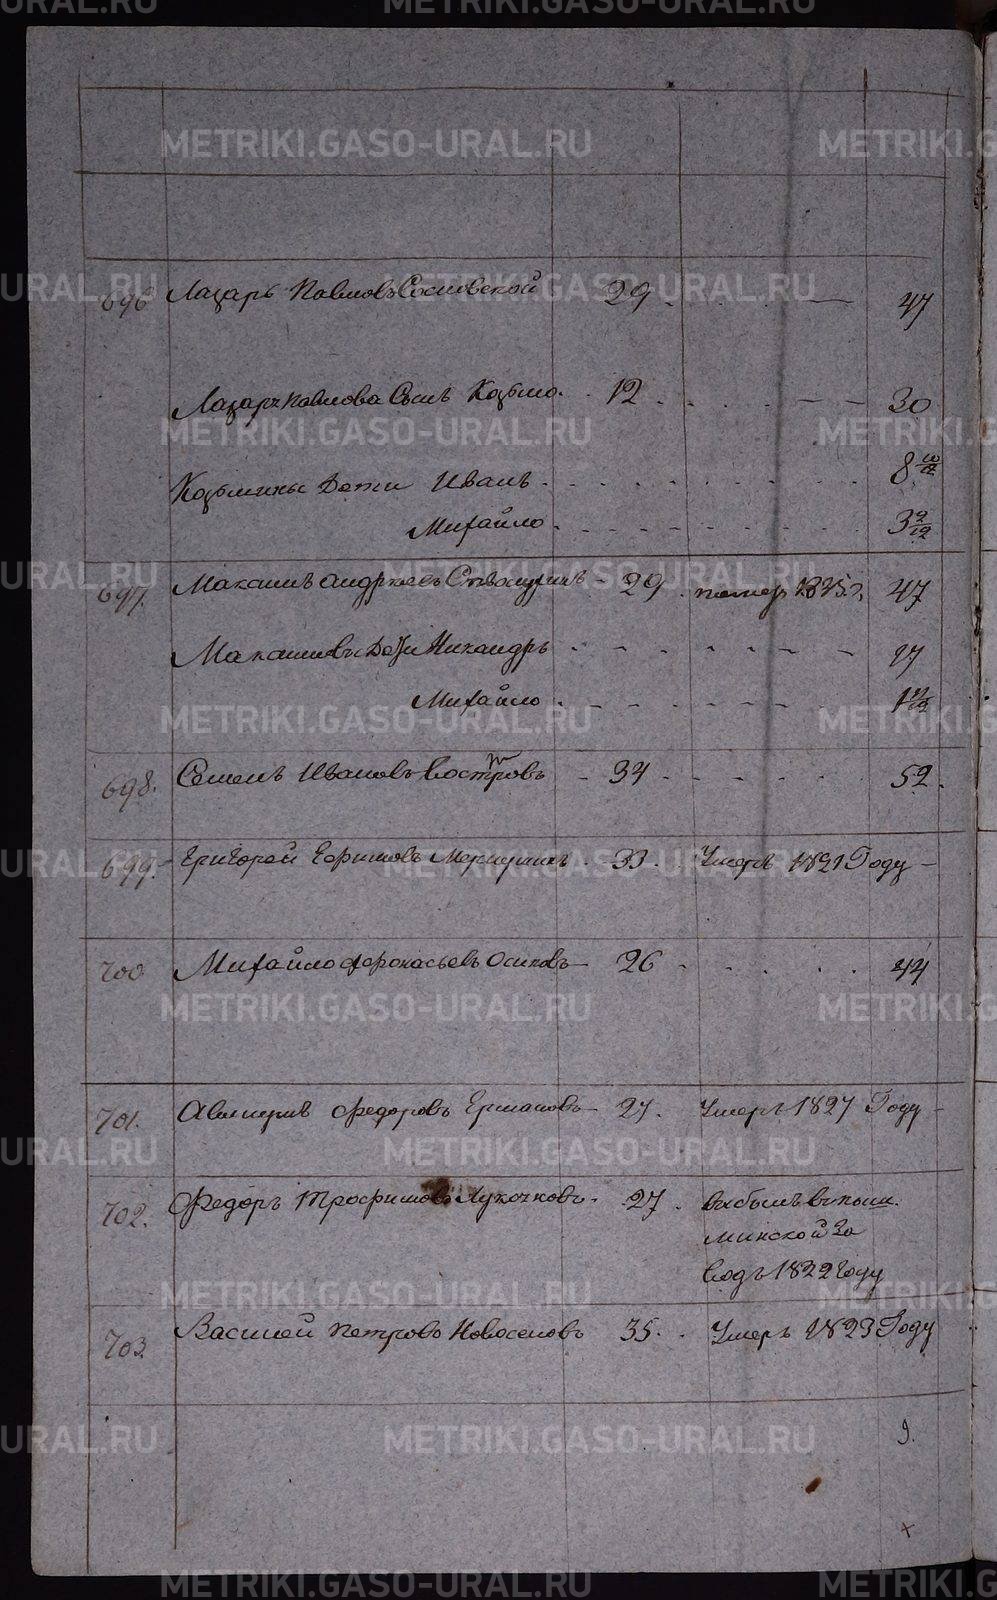 696 Лазарь Павловъ Сосновской 29 47
Лазаря Павлова Сынъ Козьма 12 30
Козьмины Дети Иванъ 8 10/12
Михайло 3 9/12
697. Максимъ Андреевъ 29 1825 47
Максимовы Дети Никандръ 17
Михайло 1
698. Семенъ Ивановъ Востровъ 34 52
699. Григорей Ефимовъ 33 Умеръ 1821 Году
700 Михайло Афонасьевъ Осиповъ 26 44
701. Федоровъ Ермаковъ 27. Умеръ 1827 Году
702. Федоръ Трофимовъ Лукочковъ 27. выбылъ въ пыш
минской за
водъ 1822 Году
703. Василей Петровъ Новоселовъ 35. Умеръ 1823 Году
9.
METRIKI.GASO-URAL.RU